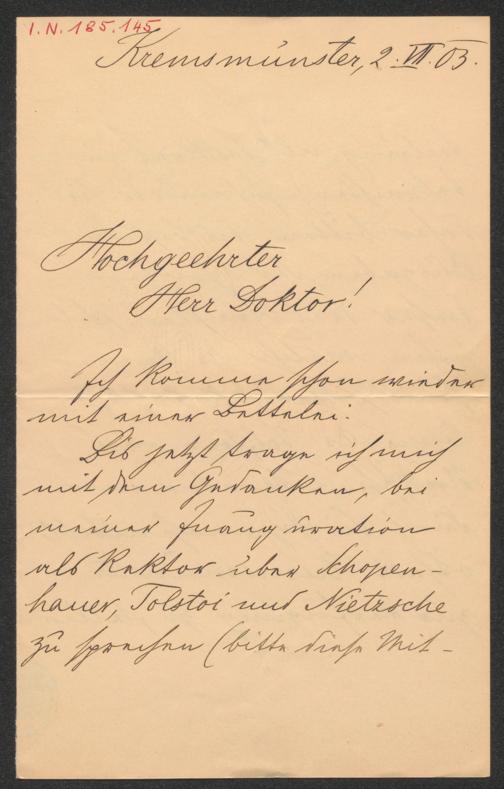 I.N. 185.145
Kremsmünster, 2. VII. 03.
Hochgeehrter
Herr Doktor!
Ich komme schon wieder
mit einer Bettelei.
Bis jetzt trage ich mich
mit dem Gedanken, bei
meiner Inauguration
als Rektor über Schopen-
hauer, Tolstoi und Nietzsche
zu sprechen (bitte diese Mit-